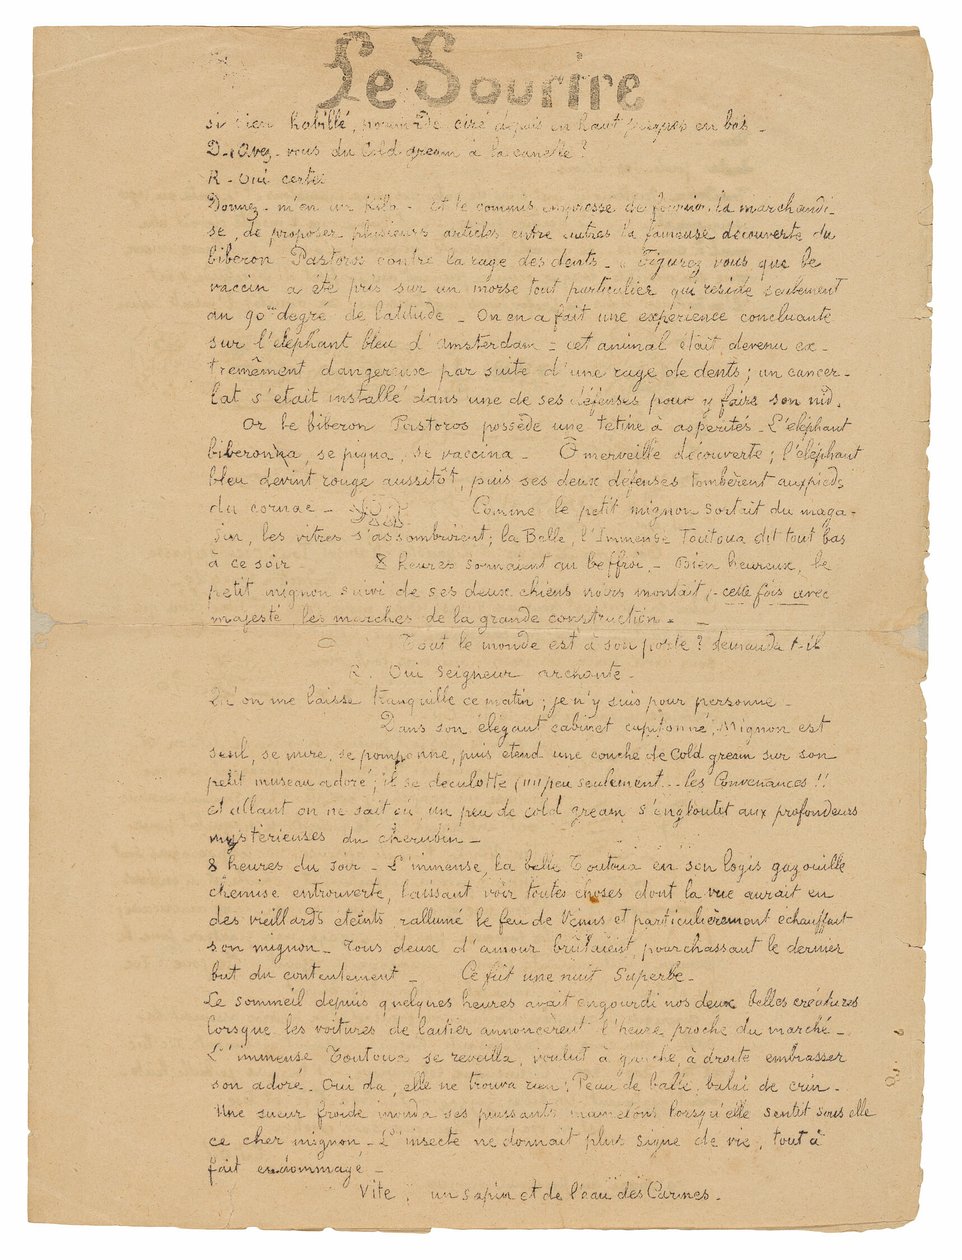 Le Sourire
si bien habillé, pommadé ciré depuis en haut jusques en bas _
D - Avez-vous du Cold gream à la canelle ?
R - Oui certes
Donnez-m'en un Kilo - et le commis empressé de fournir la marchandi-
se, de proposer plusieurs articles entre autres la fameuse découverte du
biberon Pastoros contre la rage des dents - Figurez vous que le
vaccin a été pris sur un morse tout particulier qui réside seulement
au 90me degré de latitude _ On en a fait une expérience concluante
sur l'éléphant bleu d'amsterdam = cet animal était devenu ex-
trêmement dangereux par suite d'une rage de dents ; un cancer-
lat s'était installé dans une de ses défenses pour y faire son nid.
Or le biberon Pastoros possède une tétine à aspérités - L'éléphant
biberonna, se piqua, se vaccina - Ô merveille découverte ; l'éléphant
bleu devint rouge aussitôt, puis ses deux défenses tombèrent aux pieds
du cornac - Comme le petit mignon sortait du maga-
sin, les vitres s'assombrirent ; la Belle, l'Immense Toutoua dit tout bas
à ce soir 8 heures sonnaient au beffroi. - Bien heureux, le
petit mignon suivi de ses deux chiens noirs montait, cette fois avec
majesté, les marches de la grande construction - _
Tout le monde est à son poste ? demanda t-il
R. Oui Seigneur archonte -
Qu'on me laisse tranquille ce matin ; je n'y suis pour personne -
Dans son élégant cabinet capitonné, Mignon est
seul, se mire, se pomponne, puis étend une couche de Cold gream sur son
petit museau adoré ; il se déculotte (un peu seulement... les Convenances !!
et allant on ne sait où, un peu de cold gream s'engloutit aux profondeurs
mystérieuses du chérubin -
8 heures du soir - L'immense, la belle Toutoua en son logis gazouille
chemise entrouverte, laissant voir toutes choses dont la vue aurait en
des vieillards éteints rallumé le feu de Vénus et particulièrement échauffait
son mignon - Tous deux d'amour brûlaient, pourchassant le dernier
but du contentement - Ce fut une nuit Superbe -
Le sommeil depuis quelques heures avait engourdi nos deux belles créatures
lorsque les voitures de laitier annoncèrent l'heure proche du marché -
L'immense Toutoua se réveilla, voulut à gauche à droite embrasser
son adoré - Oui da, elle ne trouva rien : Peau de balle, balai de crin -
Une sueur froide inonda ses puissants mamelons lorsqu'elle sentit sous elle
ce cher mignon - L'insecte ne donnait plus signe de vie, tout à
fait endommagé -
Vite, un sapin et de l'eau des Carmes -